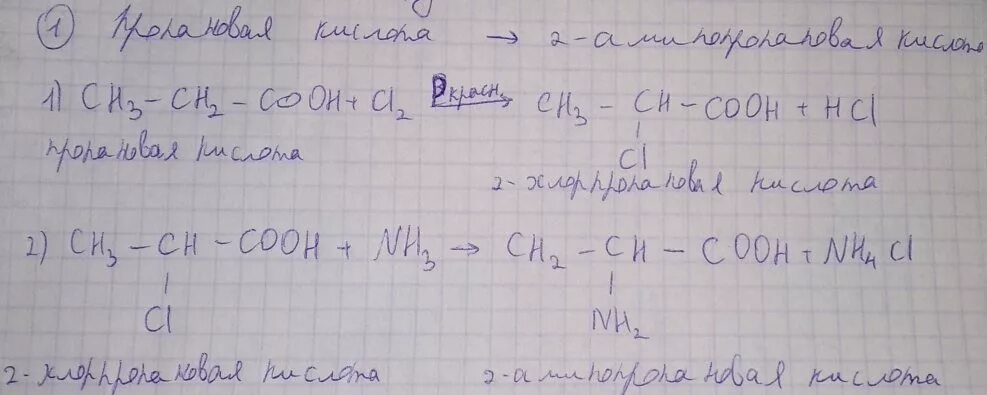 ① Пропановая кислота → 2-аминопропановая кислота
1) CH₃ – CH₂ – COOH + Cl₂ Pкрасн→ CH₃ – CH – COOH + HCl
Cl
пропановая кислота
2-хлорпропановая кислота
2) CH₃ – CH – COOH + NH₃ → CH₂ – CH – COOH + NH₄Cl
Cl NH₂
2-хлорпропановая кислота 2-аминопропановая кислота